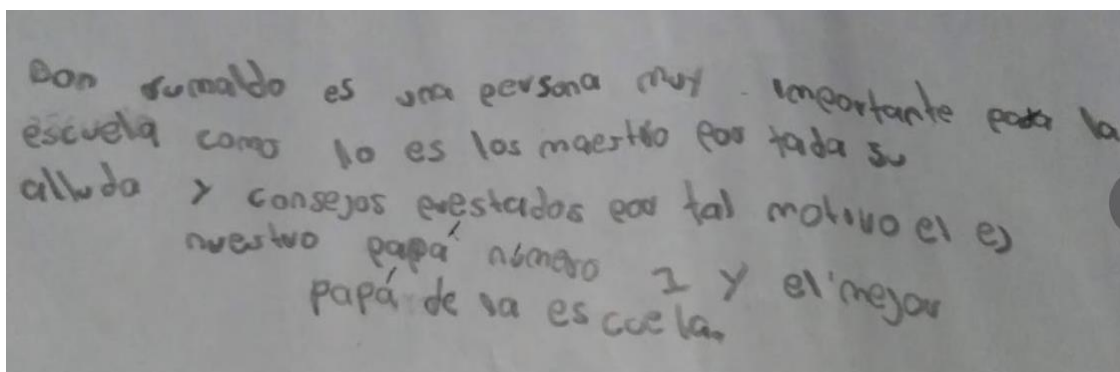 Don rumaldo es una persona muy importante para la
escuela como lo es los maestro por toda su
alluda y consejos prestados por tal motivo el es
nuestro papá número 1 y el mejor
papá de la escuela.